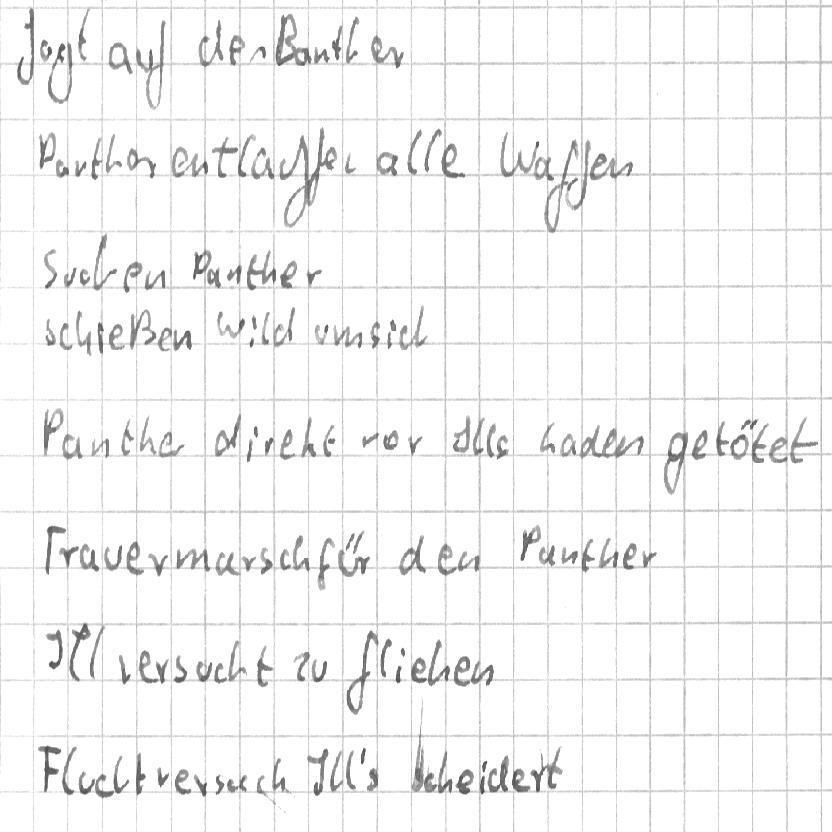 Jagt auf den Banther
Panther entlaffen alle Waffen
Suchen Panther
schießen wild umsich
Panther direkt vor Ills laden getötet
Trauermarsch für den Panther
Ill versucht zu fliehen
Fluchtversuch Ill's scheidert